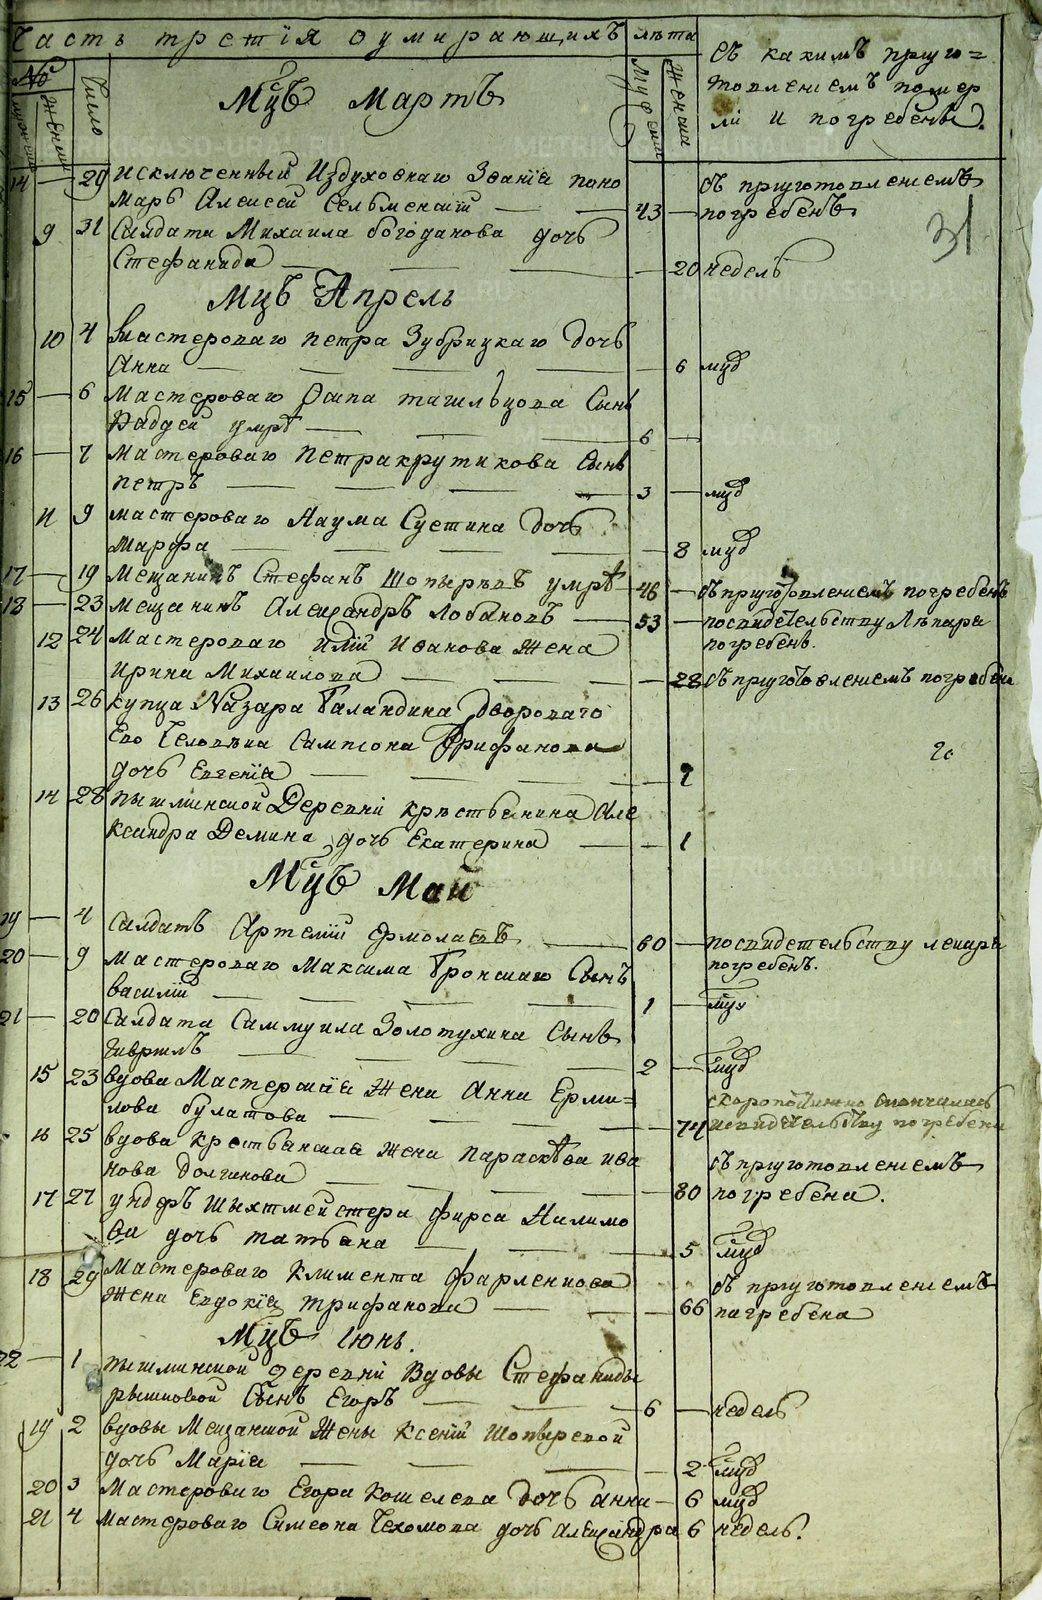 Часть третія оумирающихъ лѣта
съ какимъ пригo=
товленіемъ помер
ли и погребены.
№ Число Муж. Женска
Мцъ Мартъ
14 — 29 исключенный Издуховнаго Званія поно
марь Алексей Сельменскій — 43 — съ приготовленіемъ погребенъ
31
9 31 Салдата Михаила богоданова дочь
Стефанида — 20 недель
Мцъ Апрель
10 4 Мастероваго петра Зубрицкаго дочь
Анна — 6 мцд
15 — 6 Мастероваго Осипа тагильцова Сынъ
Фадей умре — 6 —
16 — 7 Мастероваго петра крутикова Сынъ
петръ — 3 — мцд
11 9 мастероваго Наума Суетина дочь
Марфа — 8 мцд
17 — 19 Мещанинъ Стефанъ Шопыревъ умре 46 — съ приготовленіемъ погребенъ
18 — 23 мещенинъ Александръ Лобановъ — 53 — посвидетельству Лѣкаря
погребенъ.
12 24 Мастероваго Иліи Иванова Жена
ирина Михаилова — 28 съ приготовленіемъ погребена
13 26 купца Назара Баландина двороваго
Ево Человѣка Сампсона Трифанова
дочь Евгенія — 7
20
14 28 пышминской Деревни крѣстьянина Але
ксандра Демина дочь Екатерина — 1
Мцъ Май
19 — 4 Салдатъ Артемій Ермолаевъ — 60 — посвидетельству лекаря
погребенъ.
20 — 9 мастероваго Максима Сынъ
василій — 1 — мцд
21 — 20 Салдата Саммуила Золотухина Сынъ
гавриилъ — 2 — мцд
15 23 вдова Мастерская Жена Анна Ерми=
лова булатова — 74 скоропостижно скончалась
исвидетельству погребена
16 25 вдова крестьянская жена параскѣва ива
нова Долганова — 80 съ приготовленіемъ
погребена.
17 27 ундеръ Шихтмейстера фирса Налимо
ва дочь татьяна — 5 мцд
18 29 Мастероваго климента Фарленкова
Жена Евдокія трифанова — 66 съ приготовленіемъ
пагребена
Мцъ Іюнь.
22 — 1 пышминской деревни Вдовы Стефаниды
рышковой Сынъ Егоръ — 6 — недель
19 2 вдовы Мещанской Жены Ксеніи Шопыревой
дочь Марія — 2 мцд
20 3 Мастероваго Егора Кошелева дочь анна — 6 мцд
21 4 мастероваго Симеона Чехомова дочь Александра 6 недель.